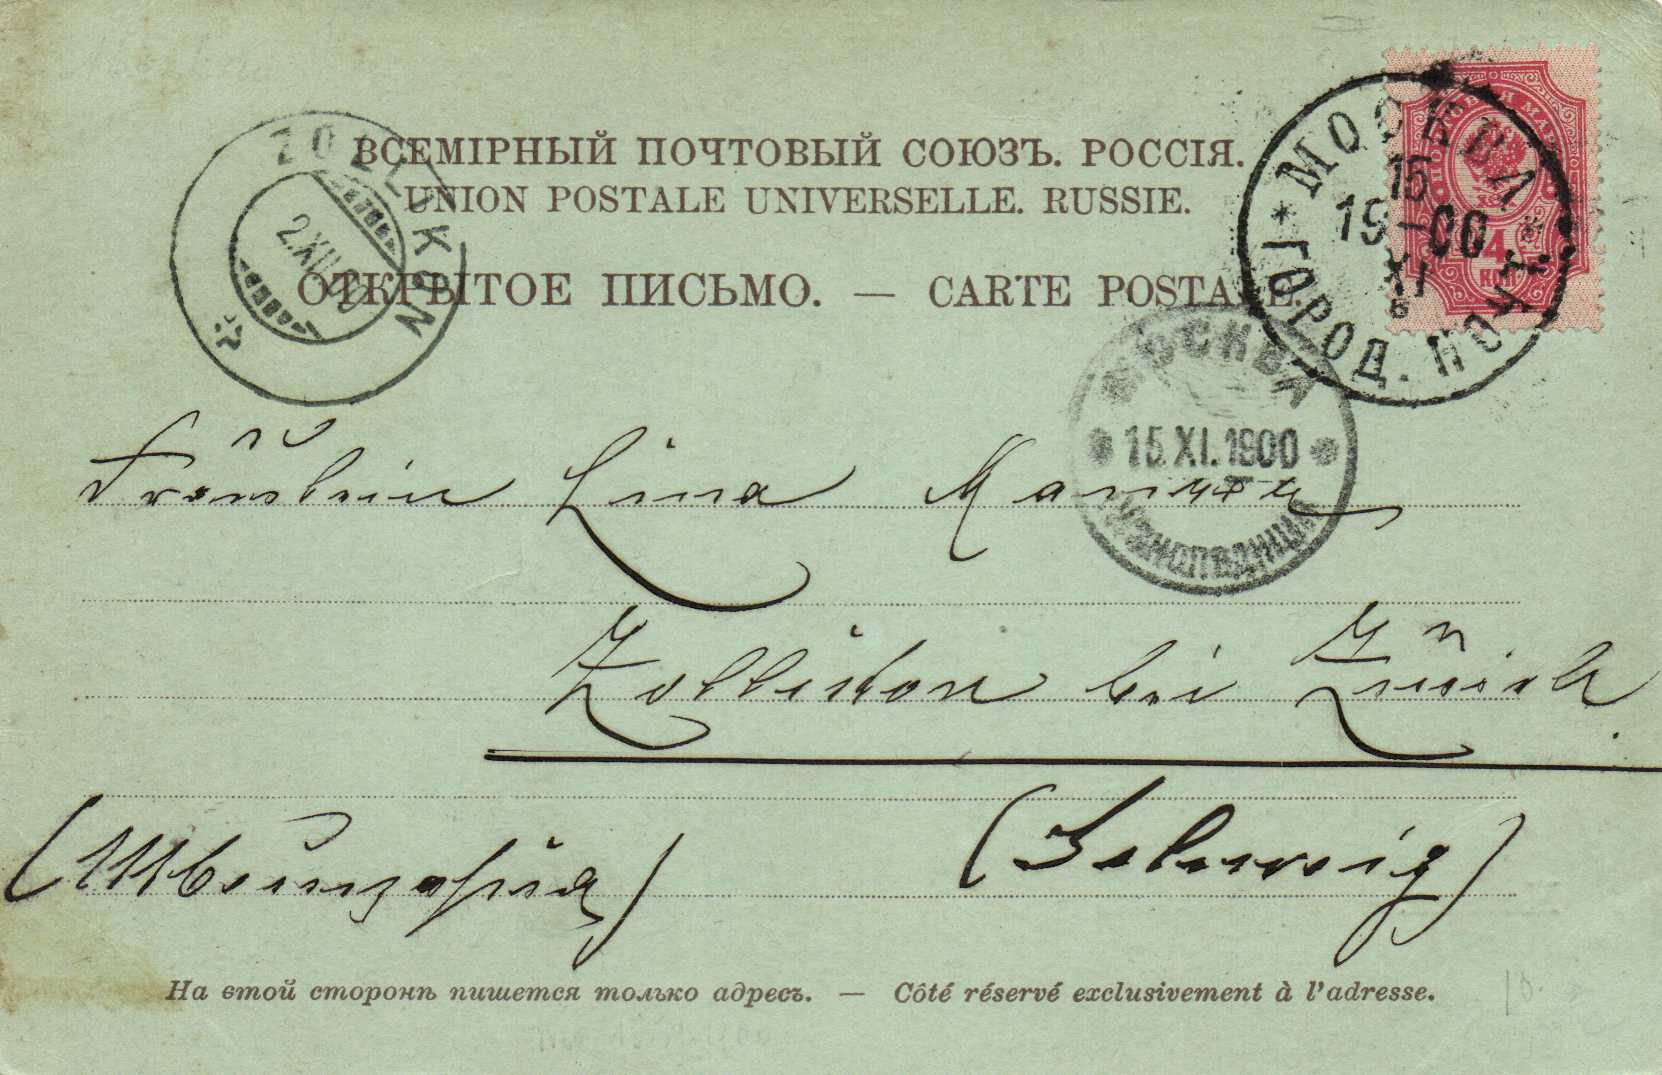 ВСЕМІРНЫЙ ПОЧТОВЫЙ СОЮЗЪ. РОССІЯ.
UNION POSTALE UNIVERSELLE. RUSSIE.
ОТКРЫТОЕ ПИСЬМО. — CARTE POSTALE.
ZOLLIKON
2.XII.00
МОСКВА
15
19-00
XI
ГОРОД. ПОЧТ.
4
КОП
МОСКВА
15.XI.1900
Fräulein Lina
Zollikon bei Zürich.
(Швейцарія) (Schweiz)
На этой сторонѣ пишется только адресъ. — Côté réservé exclusivement à l'adresse.